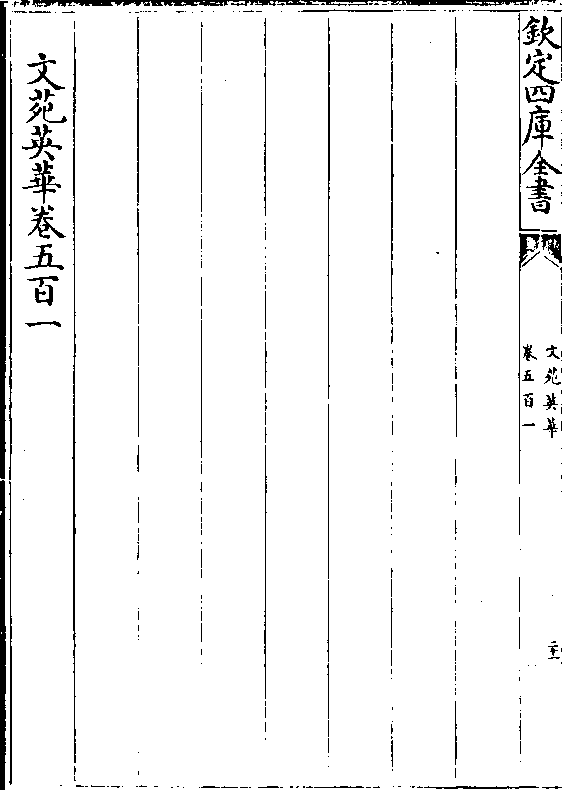 欽定四庫全書
文苑英華
卷五百一
文苑英華卷五百一